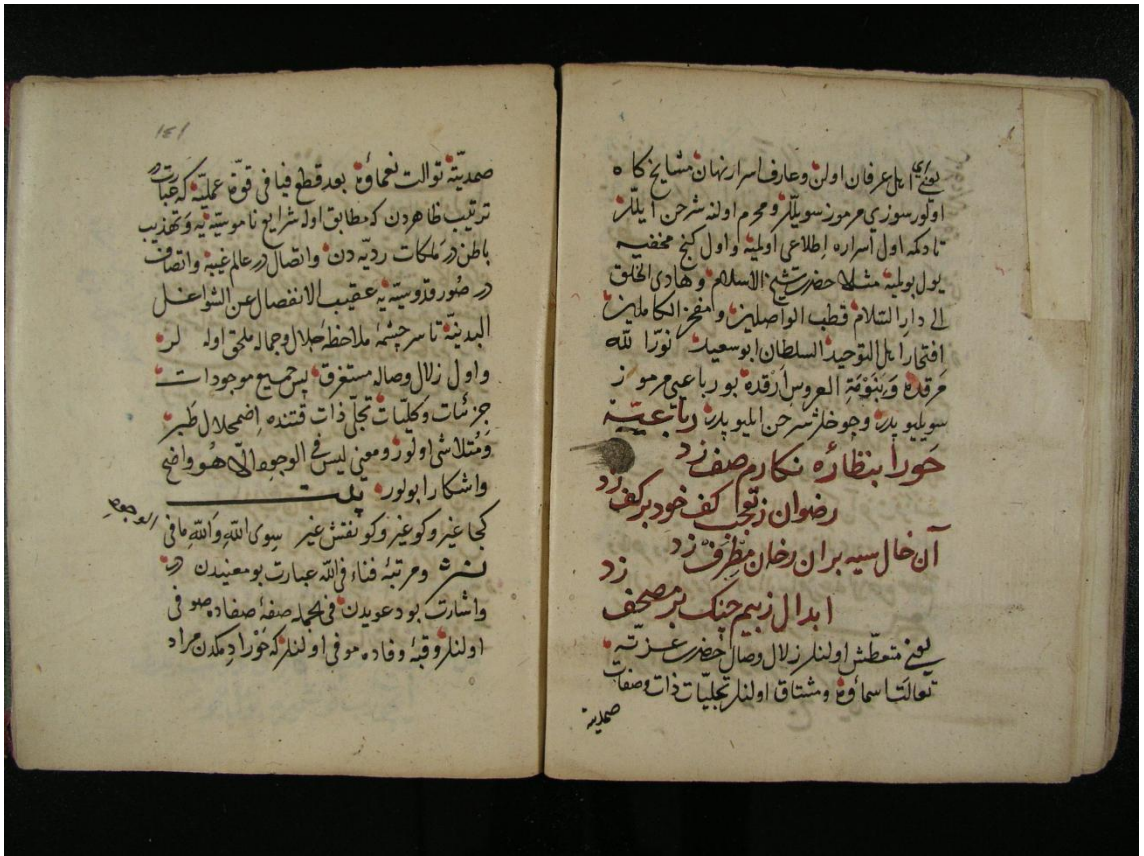 يعني اى اهل عرفان اولن وعارف اسرار نهان مشايخ كاه
اولور سوزي مرموز سويلر ومحرم اولنه شرحن ايلر
تا دكمه اول اسراره اطلاعى اولميه واول كنج مخفيه
يول بولميه مثلا حضرت شيخ الاسلام وهادى الخلق
الى دار السلام قطب الواصلين ومفخر الكاملين
افتخار اهل التوحيد السلطان ابو سعيد نور الله
مرقده وبنومة العروس ارقده بو رباعيى مرموز
سويليوپدر وچوخلر شرحن ايليوپدر رباعيه
حورا بنظاره نكارم صف زد
رضوان ز تعجب كف خود بر كف زد
آن خال سيه بران رخان مطرف زد
ابدال ز بيم چنك بر مصحف زد
يعني متعطش اولنلر زلال وصال حضرت عزته
تعالت اسماؤه ومشتاق اولنلر تجليات ذات وصفات
صمديته
صمديته توالت نعماؤه بعد قطع فيافى قوة عمليه كه عبارتدر
ترتيب ظاهردن كه مطابق اوله شرايع ناموسيه يه وتهذيب
باطندر ملكات رديه دن واتصالدر عالم غيبه واتصاف
در صور قدوسيه يه عقيب الانفصال عن الشواغل
البدنيه تا سر چشمه ملاحظه جلال وجماله ملحق اوله لر
واول زلال وصاله مستغرق پس جميع موجودات
جزئيات وكليات تجلى ذات قتنده اضمحلال طبر
ومتلاشى اولور ومعنى ليس فى الوجود الا هو واضح
واشكارا بولور بيت
كجا غير وكو غير وكو نقش غير سوى الله والله ما فى
الوجود
ومرتبه فناء فى الله عبارت بو معنيدن در
واشارت بو دعويدن فى الجمله صفه صفاده صوفى
اولنلر وقبه وفاده موفى اولنلر كه حوراد مكدن مراد